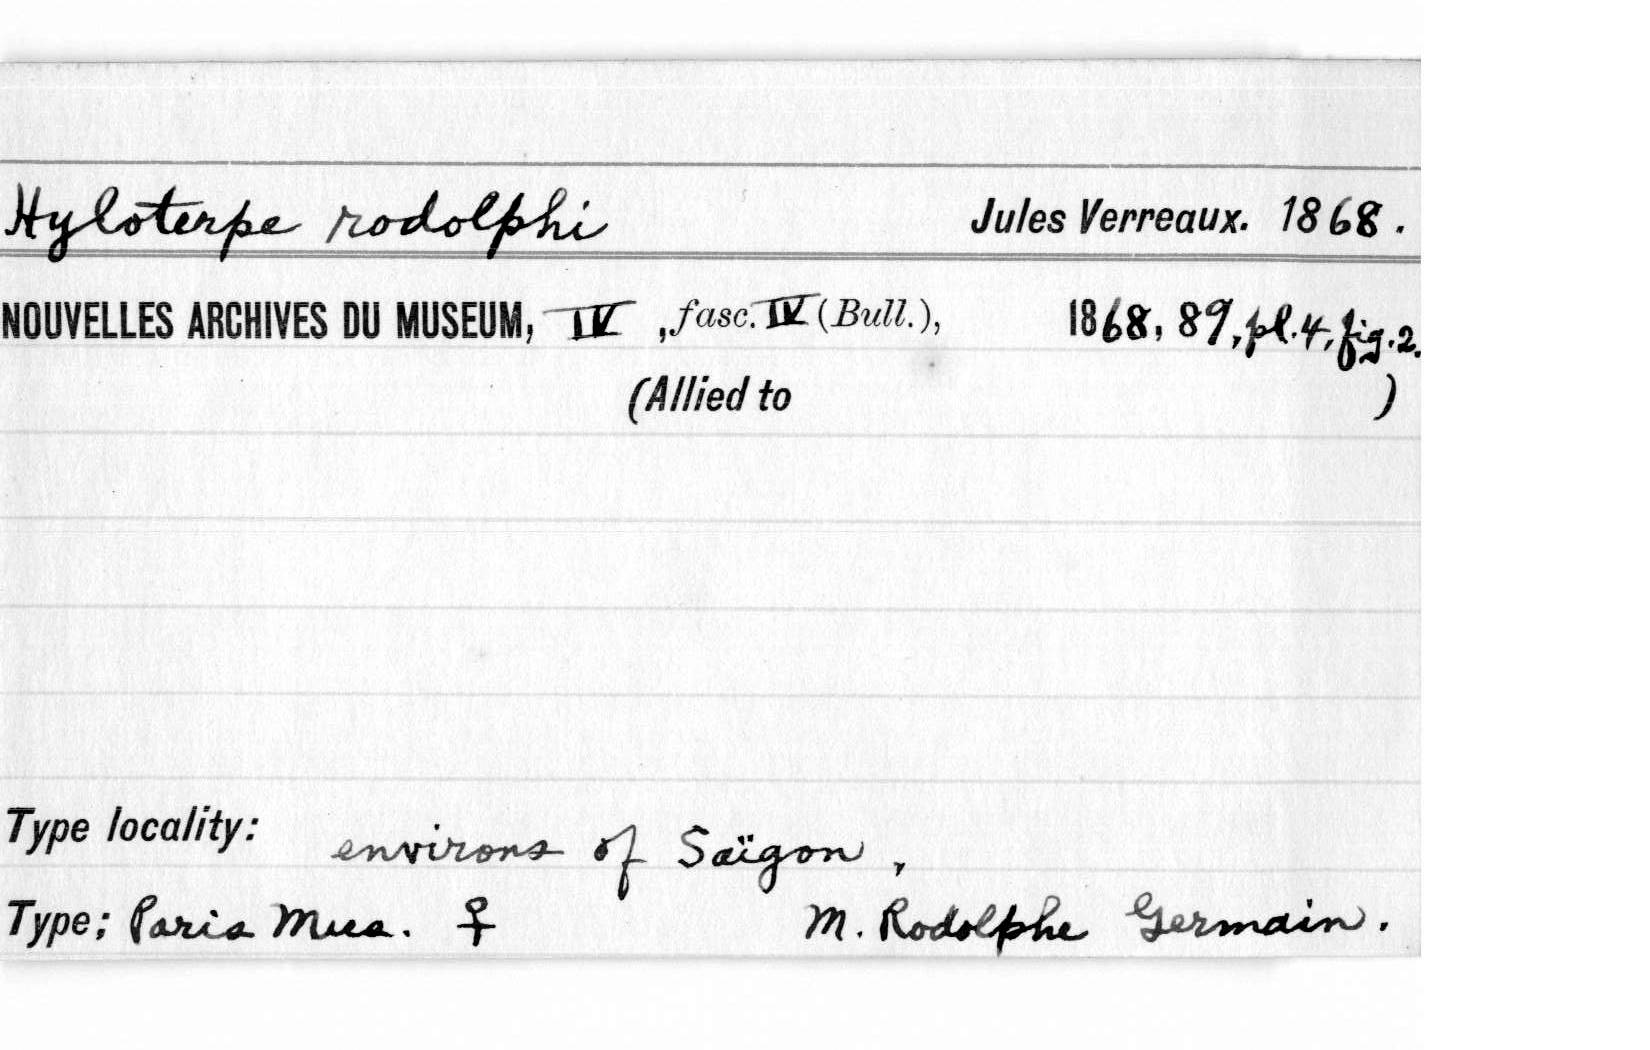 Hyloterpe rodolphi Jules Verreaux. 1868.
NOUVELLES ARCHIVES DU MUSEUM, IV , fasc. IV (Bull.), 1868, 89, pl. 4, fig. 2.
(Allied to )
Type locality: environs of Saïgon,
Type; Paris Mus. ♀ M. Rodolphe Germain.